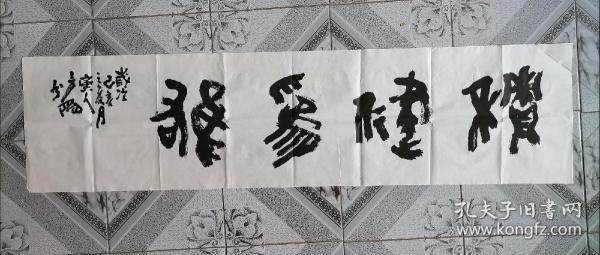 積健為雄
歲次
己亥
之夏月
孔夫子旧书网
kongfz.com